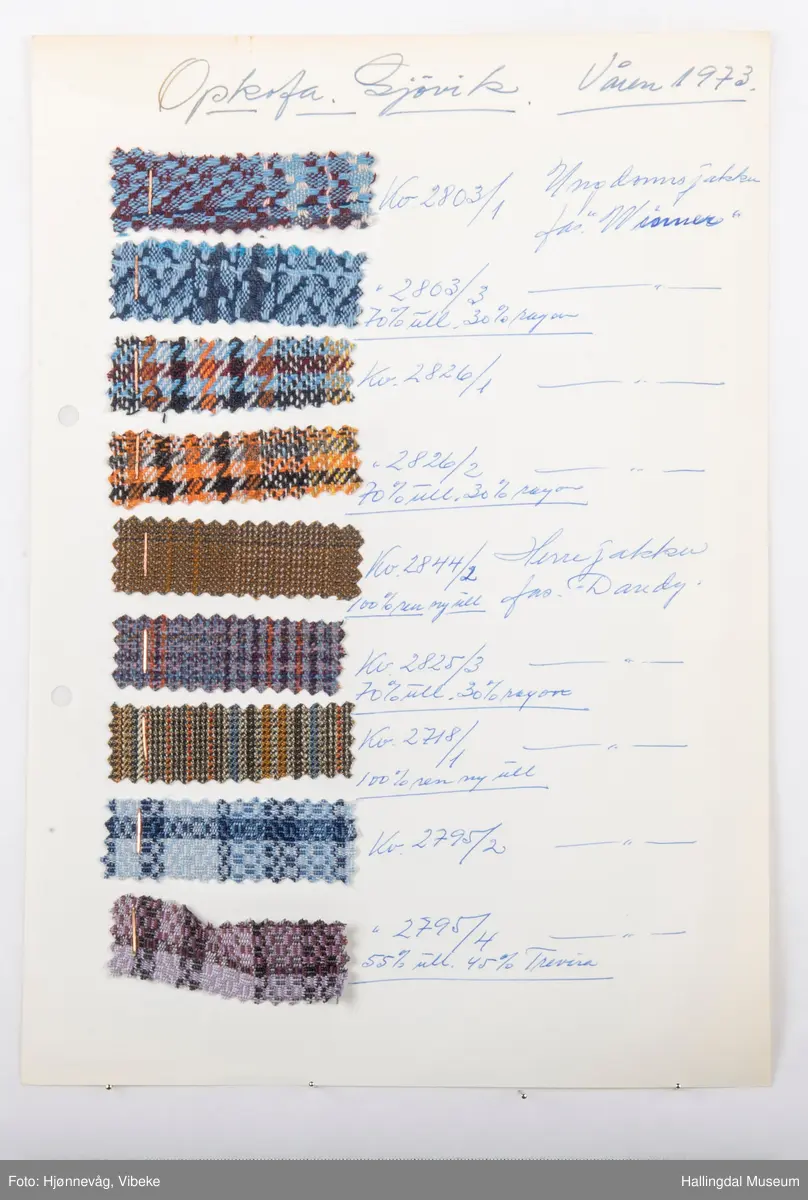 Opkofa. Gjövik. Våren 1973.
Kv 2803/1 Ungdomsjakke
fas. "Winner"
" 2803/3 — " —
70% ull. 30% rayon
Kv. 2826/1 — " —
" 2826/2 — " —
70% ull. 30% rayon
Kv. 2844/2 Herrejakke
100% ren ny ull fas. "Dandy.
Kv. 2825/3 — " —
70% ull. 30% rayon
Kv. 2718/1 — " —
100% ren ny ull
Kv. 2795/2 — " —
" 2795/4 — " —
55% ull. 45% Trevira
Foto: Hjønnevåg, Vibeke
Hallingdal Museum